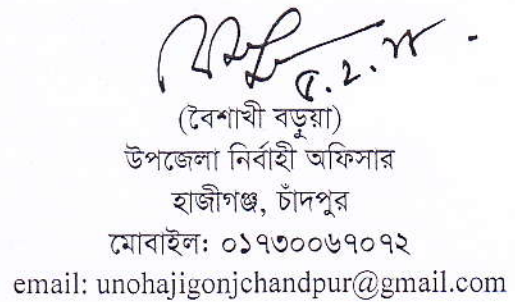 ৫.২.১৮
(বৈশাখী বড়ুয়া)
উপজেলা নির্বাহী অফিসার
হাজীগঞ্জ, চাঁদপুর
মোবাইল: ০১৭৩০০৬৭০৭২
email: unohajigonjchandpur@gmail.com